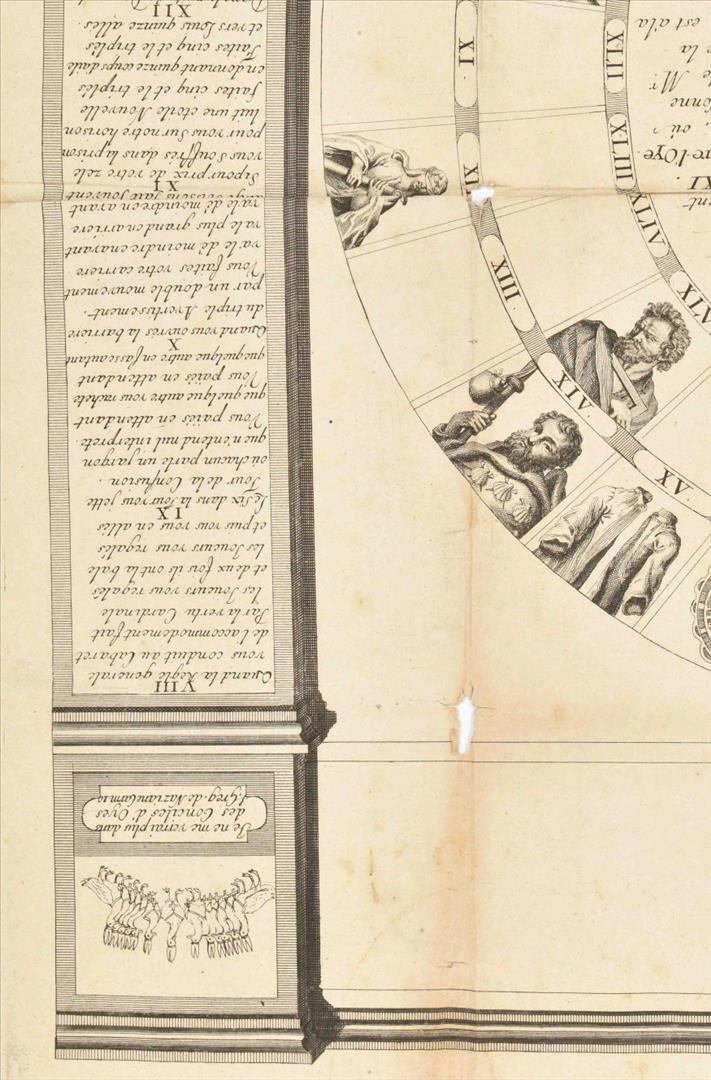 Je ne me verrai plus dans
des Conciles d'Oyes
S. Greg. de Nazianze Carm 10
VIII
Quand la Regle generale
vous conduit au Cabaret
de l'accommodement fait
Par la vertu Cardinale
les Joueurs vous regalés
et deux fois ils ont la bale
les Joueurs vous regalés
et puis vous vous en allés
IX
Le Six dans la Tour vous jette
Tour de la Confusion.
où chacun parle un jargon
que n'entend nul interprete.
Vous païés en attendant
que quelque autre vous rachete
Vous païés en attendant
que quelque autre en fasse autant
X
Quand vous ouvrés la barriere
du triple Avertissement.
par un double mouvement
Vous faites votre carriere
va le dé moindre en avant
va le plus grand en arriere
va le dé moindre en avant
XI
Si pour prix de votre zele
vous Souffrés dans la prison
pour vous Sur notre horison
luit une etoile Nouvelle
faites cinq et le triplés
en donnant quinze coups d'aile
Faites cinq et le triplés
et vers Louis quinze allés.
XII
XV
XIV
XIII
XII
XI
XLIV
XLIII
XLII
re-l'Oye
où
le Mr
la
est à la